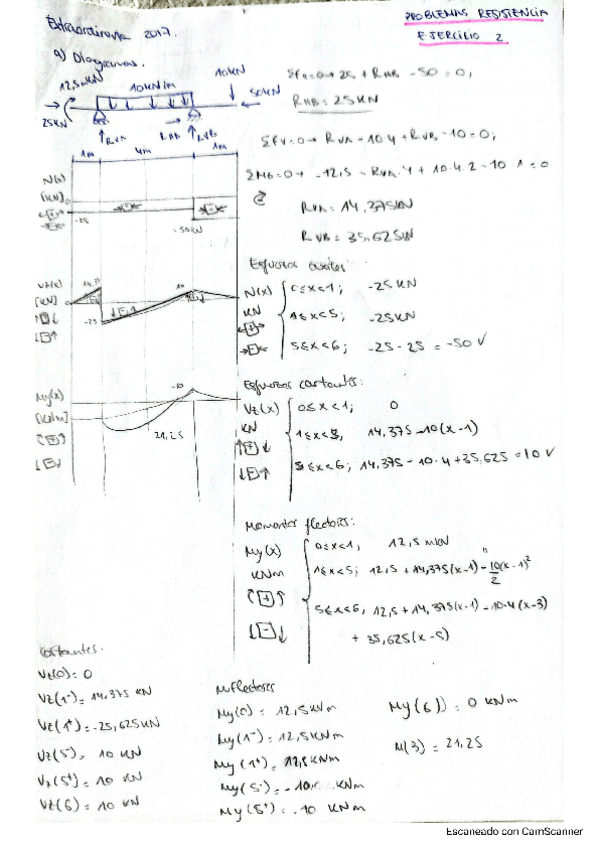 PROBLEMAS RESISTENCIA
EJERCICIO 2
Extraordinaria 2017.
a) Diagramas.
12,5mkN
10kN/m
10kN
50kN
25KN
RVA
RHB
RVB
1m
4m
1m
ΣFH=0→ 25 + RHB - 50 = 0;
RHB = 25KN
ΣFV=0→ RVA - 10·4 + RVB - 10 = 0;
ΣMB=0→ -12,5 - RVA·4 + 10·4·2 - 10·1 = 0
RVA = 14,375KN
RVB = 35,625KN
N(x)
[KN]
-25
-50KN
Vz(x)
[KN]
-25
10
My(x)
[KNm]
-10
21,25
Esfuerzos axiles:
N(x)
KN
0≤x<1; -25KN
1≤x<5; -25KN
5≤x<6; -25-25 = -50 V
Esfuerzos cortantes:
Vz(x)
KN
0≤x<1; 0
1≤x<5, 14,375-10(x-1)
5≤x<6; 14,375-10·4+35,625 = 10 V
Momentos flectores:
My(x)
KNm
0≤x<1, 12,5 mkN
1≤x<5; 12,5+14,375(x-1)-10/2(x-1)²
5≤x<6, 12,5+14,375(x-1)-10·4(x-3)
+ 35,625(x-5)
Cortantes.
Vz(0)= 0
Vz(1⁻)= 14,375 KN
Vz(1⁺)= -25,625KN
Vz(5⁻)= 10 KN
Vz(5⁺)= 10 KN
Vz(6)= 10 KN
M.flectores
My(0) = 12,5KNm
My(1⁻)= 12,5KNm
My(1⁺)= 12,5KNm
My(5⁻)= -10 KNm
My(5⁺)= -10 KNm
My(6)) = 0 KNm
M(3) = 21,25
Escaneado con CamScanner